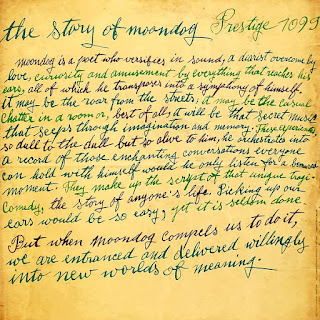 the Story of moondog Prestige 1099
moondog is a poet who versifies in sound, a diarist overcome by
love, curiosity and amusement by everything that reaches his
ears, all of which he transposes into a symphony of himself.
it may be the roar from the streets; it may be the casual
chatter in a room or, best of all, it will be that secret music
that seeps through imagination and memory. These experiences,
so dull to the dull but so alive to him, he orchestrates into
a record of those enchanting conversations everyone
can hold with himself would he only listen for a
moment. They make up the script of that unique tragi-
comedy, the story of anyone's life. Picking up our
ears would be so easy; yet it is seldom done.
But when moondog compels us to do it,
we are entranced and delivered willingly
into new worlds of meaning.